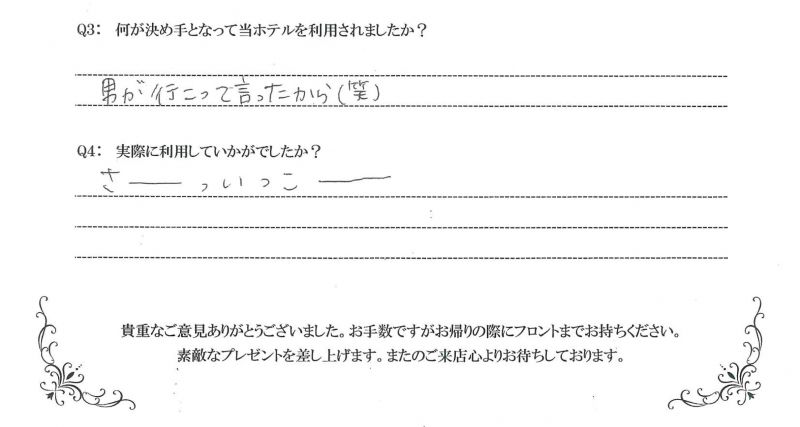 Q3： 何が決め手となって当ホテルを利用されましたか？
男が行こって言ったから(笑)
Q4： 実際に利用していかがでしたか？
さーっいっこー
貴重なご意見ありがとうございました。お手数ですがお帰りの際にフロントまでお持ちください。
素敵なプレゼントを差し上げます。またのご来店心よりお待ちしております。